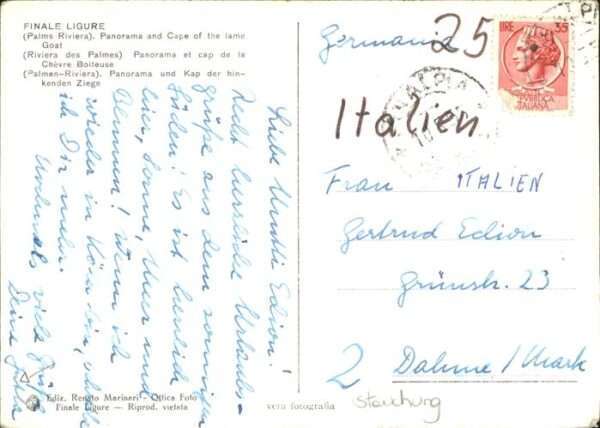 FINALE LIGURE
(Palms Riviera). Panorama and Cape of the lame
Goat
(Riviera des Palmes) Panorama et cap de la
Chèvre Boiteuse
(Palmen-Riviera). Panorama und Kap der hin-
kenden Ziege
Liebe Mutti Edion!
Recht herzliche Urlaubs-
grüße aus dem sonnigen
Süden! Es ist herrlich
hier, Sonne, Meer und
Blumen! Wenn ich
wieder in Köln bin, schreibe
ich Dir mehr.
Nochmals viele Grüße
Deine
Ediz. Renato Marineri - Ottica Foto
Finale Ligure — Riprod. vietata
vera fotografia
Germania
25
LIRE 35
REPUBBLICA
ITALIANA
Italien
Frau ITALIEN
Gertrud Edion
Grünstr. 23
2 Dahme/Mark